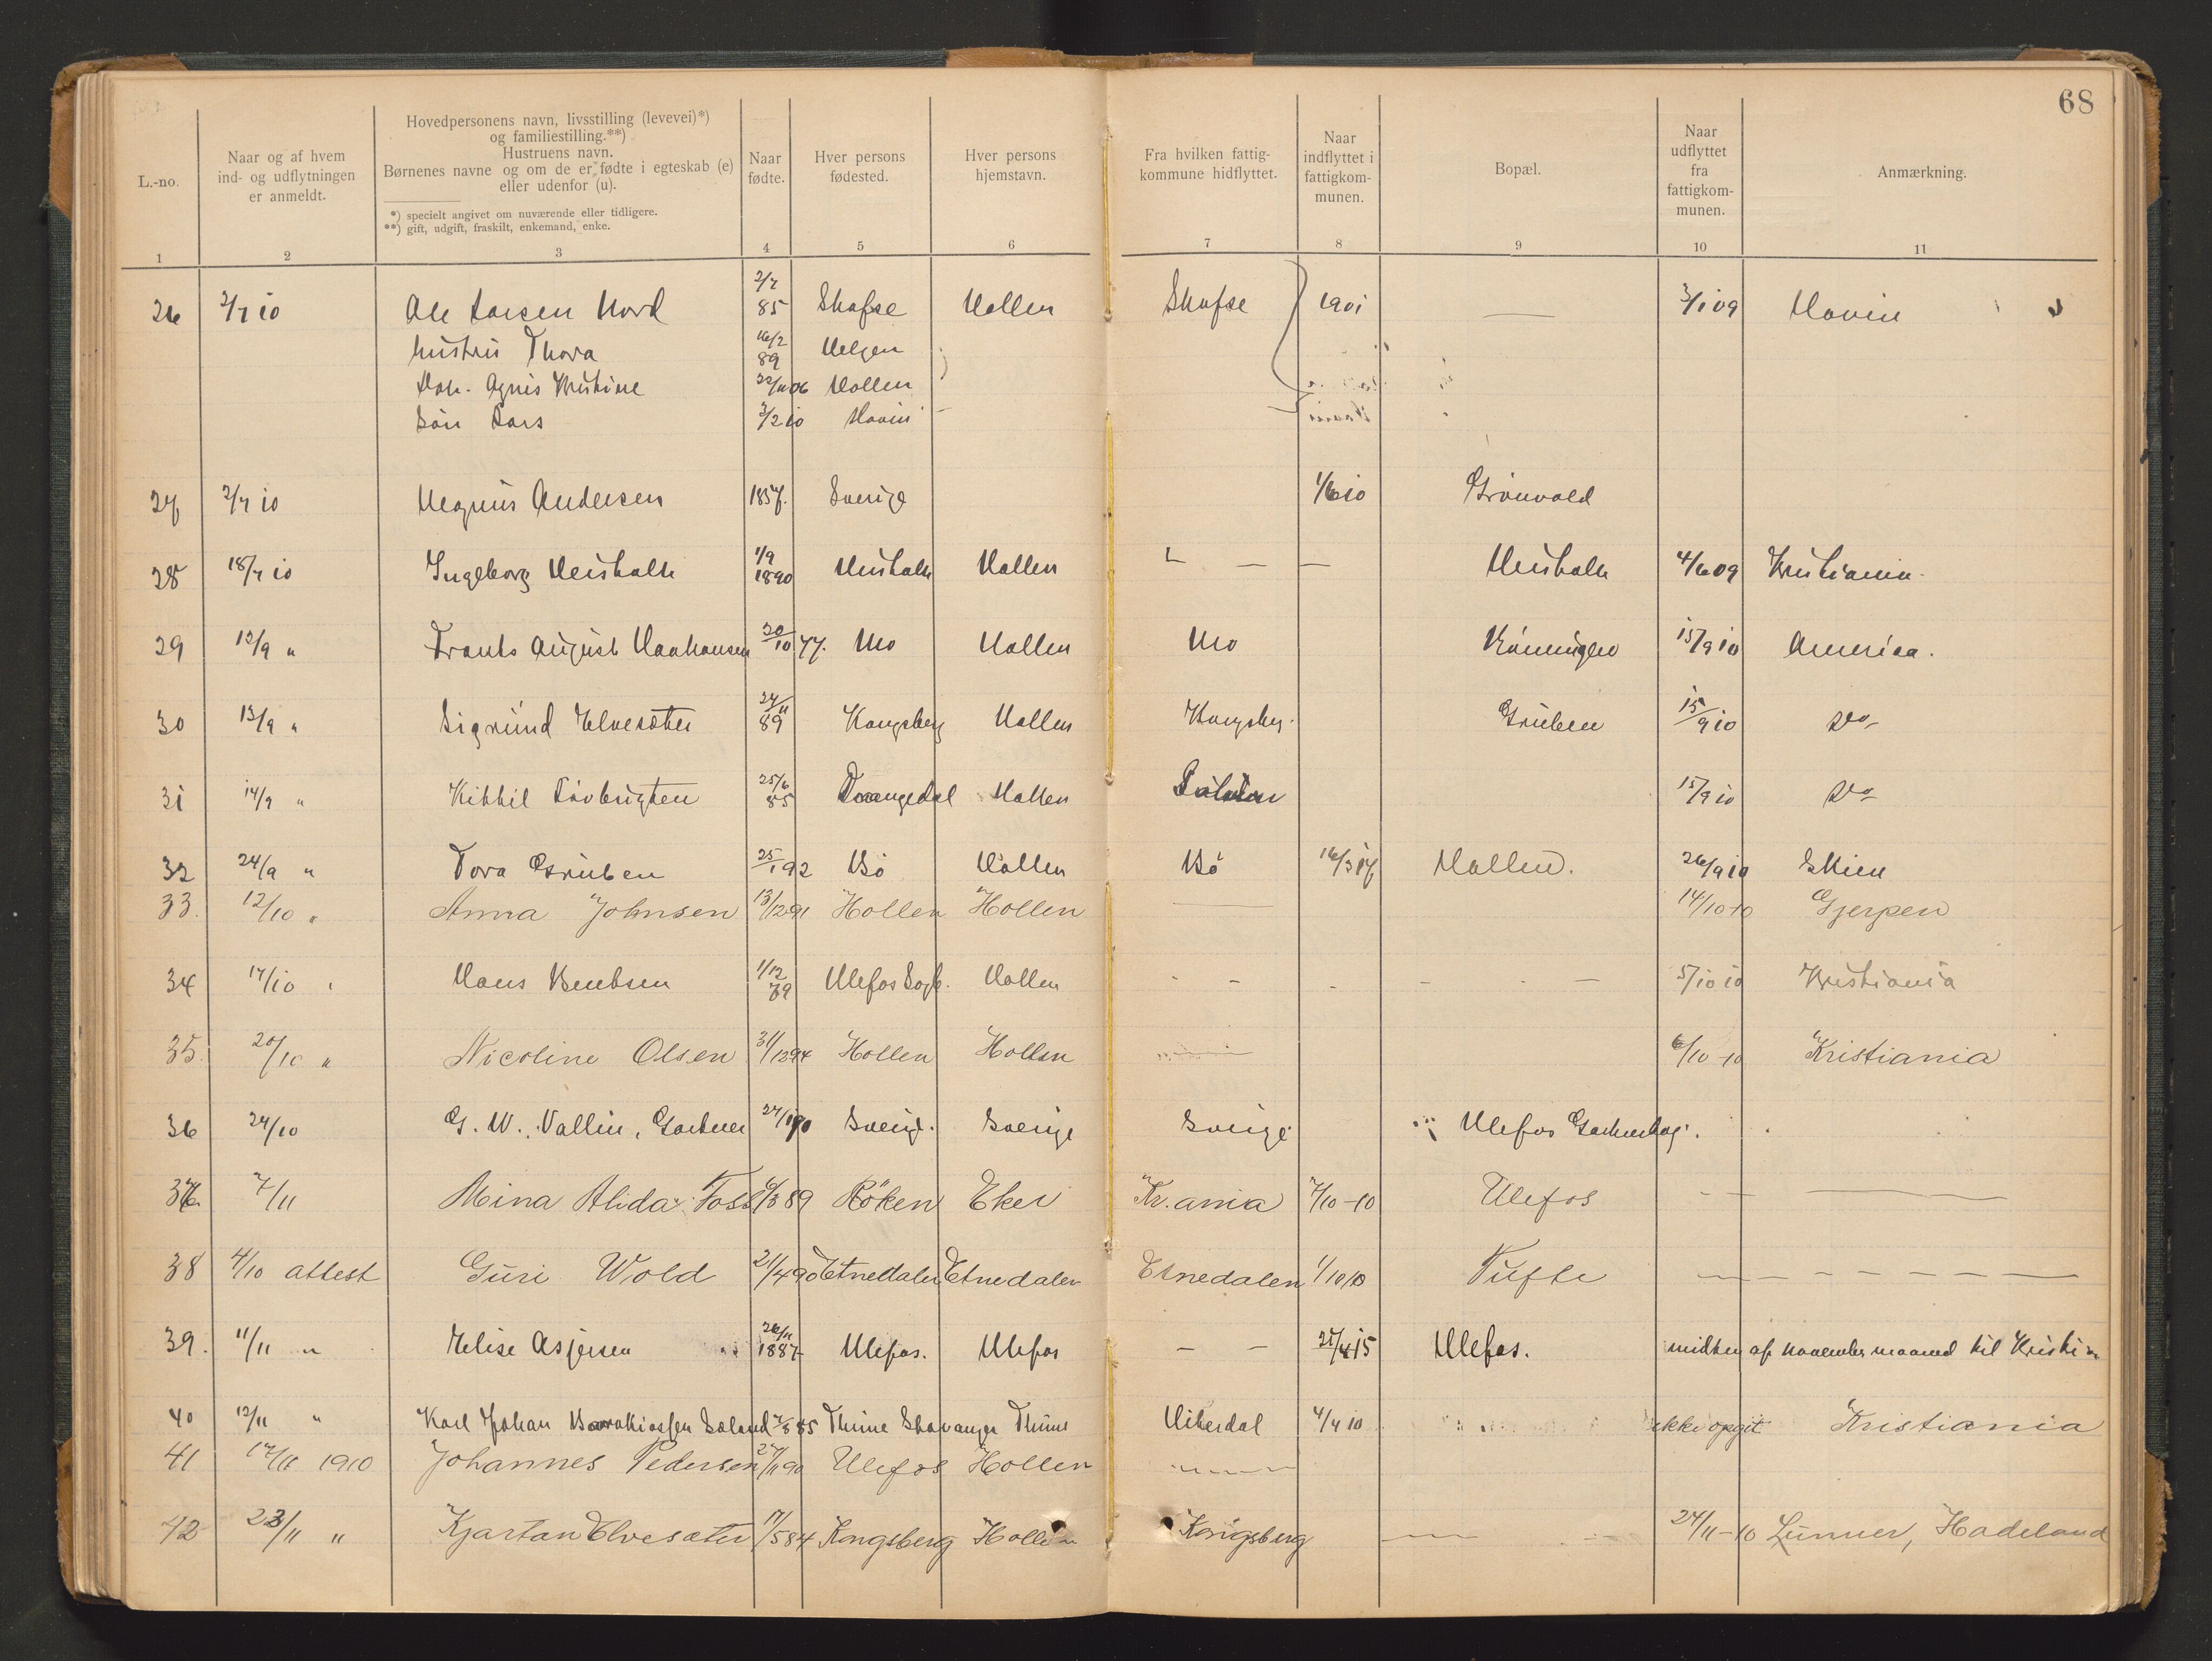 68
L.-no.
Naar og af hvem
ind- og udflytningen
er anmeldt.
Hovedpersonens navn, livsstilling (levevei)*)
og familiestilling.**)
Hustruens navn.
Børnenes navne og om de er fødte i egteskab (e)
eller udenfor (u).
*) specielt angivet om nuværende eller tidligere.
**) gift, udgift, fraskilt, enkemand, enke.
Naar
fødte.
Hver persons
fødested.
Hver persons
hjemstavn.
Fra hvilken fattig-
kommune hidflyttet.
Naar
indflyttet i
fattigkom-
munen.
Bopæl.
Naar
udflyttet
fra
fattigkom-
munen.
Anmærkning.
1 2 3 4 5 6 7 8 9 10 11
26 2/7 10 Ole Larsen Nord 2/7 85 Skafse Hollen Skafse 1901 — 3/1 09 Hovin
hustru Thora 16/2 89 Helgen
Dat. Agnis Kristine 22/11 06 Hollen
Søn Lars 3/2 10 Hovin
27 2/7 10 Magnus Andersen 1857. Sverige 1/6 10 Grönvold
28 18/7 10 Ingeborg 1/9 1890 Hollen — — 4/6 09 Kristiania
29 12/9 " Frants August Haakonsen 20/10 77. Mo Hollen Mo 15/9 10 America.
30 13/9 " Sigrund Elvesæter 24/11 89 Kongsberg Hollen Kongsbg. Gruben 15/9 10 Do
31 14/9 " Kittil 25/6 85 Drangedal Hollen 15/9 10 Do
32 24/9 " Tora Gruben 25/1 92 Bö Hollen Bö 16/3 07 Hollen. 26/9 10 Skien
33. 12/10 " Anna Johnsen 13/12 91 Hollen Hollen — 14/10-10 Gjerpen
34 17/10 " Hans Bentsen 1/12 79 Ulefos Hollen - - - - - - 5/10 10 Kristiania
35. 20/10 " Nicoline Olsen 31/12 94 Hollen Hollen — 6/10-10 Kristiania
36 24/10 G. W. Vallin, Gartner 27/1 90 Sverige. Sverige Sverige Ulefos
37 7/11 Mina Alida Foss 9/3 89 Röken Eker Kr.ania 7/10-10 Ulefos — —
38 4/10 attest Guri Wold 21/4 90 Etnedalen Etnedalen Etnedalen 1/10 10 Tufte — — — —
39. 11/11 " Elise Asjersen 26/11 1887 Ulefos. Ulefos — — 25/4 15 Ulefos. midten af november maaned til Kristi
40 12/11 " Karl Johan Soland 7/8 85 Thime Stavanger Thime Vikedal 4/4 10 ikke opgit Kristiania
41 17/11 1910 Johannes Pedersen 27/11 90 Ulefos Hollen — —
42 23/11 " Kjartan Elvesæter 17/5 84 Kongsberg Hollen Kongsberg — 24/11-10 Lunner, Hadeland